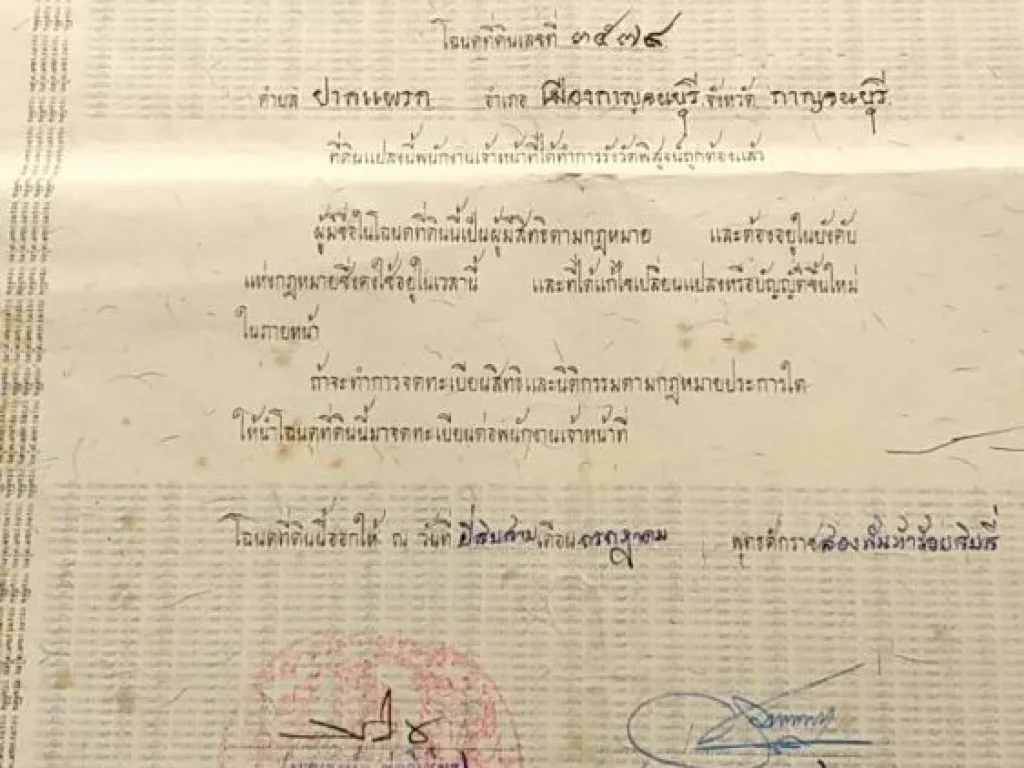 โฉนดที่ดินเลขที่ ๓๕๗๙
ตำบล ปากแพรก อำเภอ เมืองกาญจนบุรี จังหวัด กาญจนบุรี
ที่ดินแปลงนี้พนักงานเจ้าหน้าที่ได้ทำการรังวัดพิสูจน์ถูกต้องแล้ว
ผู้มีชื่อในโฉนดที่ดินนี้เป็นผู้มีสิทธิตามกฎหมาย และต้องอยู่ในบังคับ
แห่งกฎหมายซึ่งคงใช้อยู่ในเวลานี้ และที่ได้แก้ไขเปลี่ยนแปลงหรือบัญญัติขึ้นใหม่
ในภายหน้า
ถ้าจะทำการจดทะเบียนสิทธิและนิติกรรมตามกฎหมายประการใด
ให้นำโฉนดที่ดินนี้มาจดทะเบียนต่อพนักงานเจ้าหน้าที่
โฉนดที่ดินนี้ออกให้ ณ วันที่ ยี่สิบสาม เดือน กรกฎาคม พุทธศักราช สองพันห้าร้อยสิบสี่